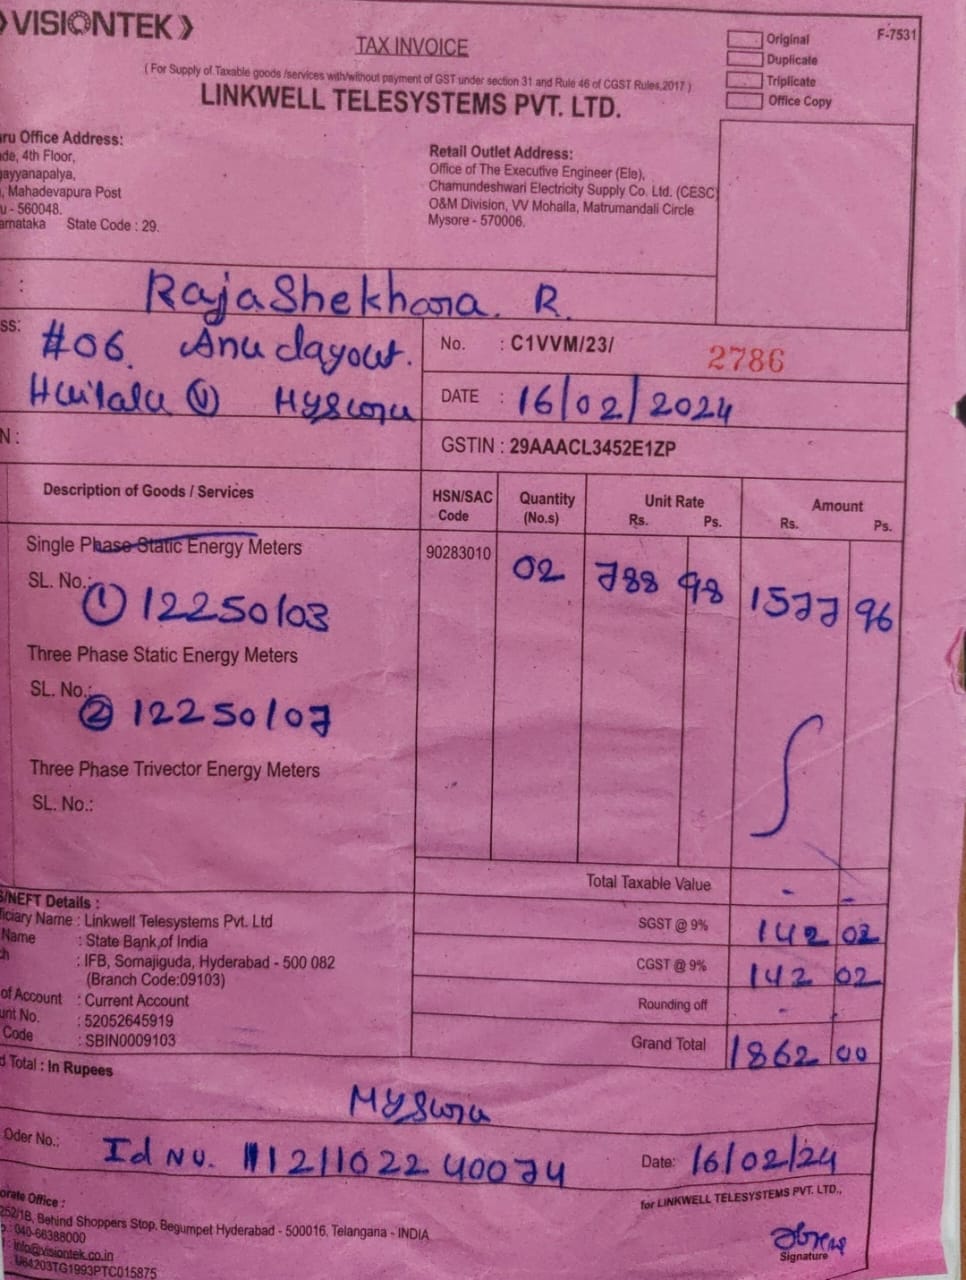 VISIONTEK
TAX INVOICE
Original
Duplicate
Triplicate
Office Copy
F-7531
( For Supply of Taxable goods /services with/without payment of GST under section 31 and Rule 46 of CGST Rules,2017 )
LINKWELL TELESYSTEMS PVT. LTD.
ru Office Address:
de, 4th Floor,
ayyanapalya,
, Mahadevapura Post
u - 560048.
arnataka State Code : 29.
Retail Outlet Address:
Office of The Executive Engineer (Ele),
Chamundeshwari Electricity Supply Co. Ltd. (CESC)
O&M Division, VV Mohalla, Matrumandali Circle
Mysore - 570006.
: RajaShekhara. R.
ss: #06. Anu Layout.
Huilalu (V) Mysuru
No. : C1VVM/23/ 2786
DATE : 16/02/2024
N :
GSTIN : 29AAACL3452E1ZP
Description of Goods / Services HSN/SAC Code Quantity (No.s) Unit Rate Rs. Ps. Amount Rs. Ps.
Single Phase Static Energy Meters 90283010 02 788 98 1577 96
SL. No.: ① 12250103
Three Phase Static Energy Meters
SL. No.: ② 12250107
Three Phase Trivector Energy Meters
SL. No.:
Total Taxable Value - -
SGST @ 9% 142 02
CGST @ 9% 142 02
Rounding off -
Grand Total 1862 00
S/NEFT Details :
ficiary Name : Linkwell Telesystems Pvt. Ltd
Name : State Bank of India
ch : IFB, Somajiguda, Hyderabad - 500 082
(Branch Code:09103)
of Account : Current Account
unt No. : 52052645919
Code : SBIN0009103
d Total : In Rupees
Mysuru
Oder No.: Id No. 1121102240074 Date: 16/02/24
for LINKWELL TELESYSTEMS PVT. LTD.,
orate Office :
252/1B, Behind Shoppers Stop, Begumpet Hyderabad - 500016. Telangana - INDIA
: 040-66388000
: info@visiontek.co.in
: U64203TG1993PTC015875
Signature